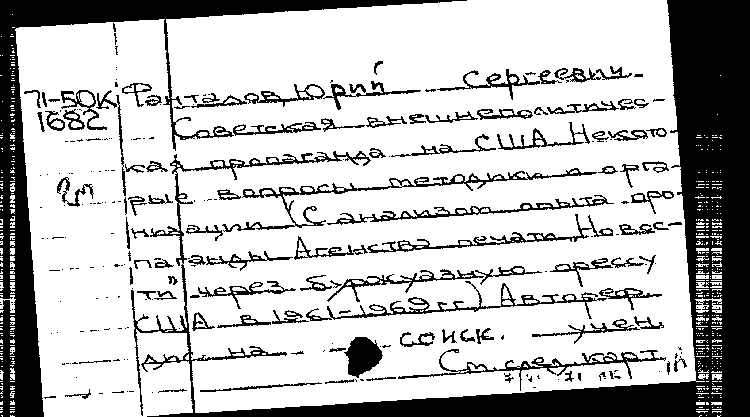 71-БОК Фанталов, Юрий Сергеевич.
1682 Советская внешнеполитичес-
кая пропаганда на США. Некото-
2т рые вопросы методики и орга-
низации (С анализом опыта про-
паганды Агенства печати „Новос-
ти" через буржуазную прессу
США в 1961-1969 гг.) Автореф.
дис. на соиск. учен.
См. след. карт.